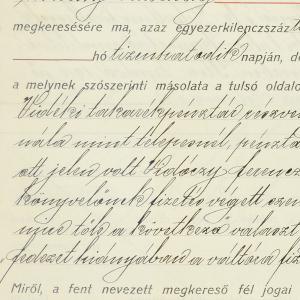 megkeresésére ma, azaz egyezerkilenczszáz
hó tizenhatodik napján, de
a melynek szószerinti másolata a tulsó oldalo
Vidéki takarékpénztár részvé
nála mint telepesnél, pénztá
ott jelen volt Vidóczy ferencz
könyvelőnek fizetés végett
mire tőle a következő választ
fedezet hiányában a váltóra fiz
Miről, a fent nevezett megkereső fél jogai